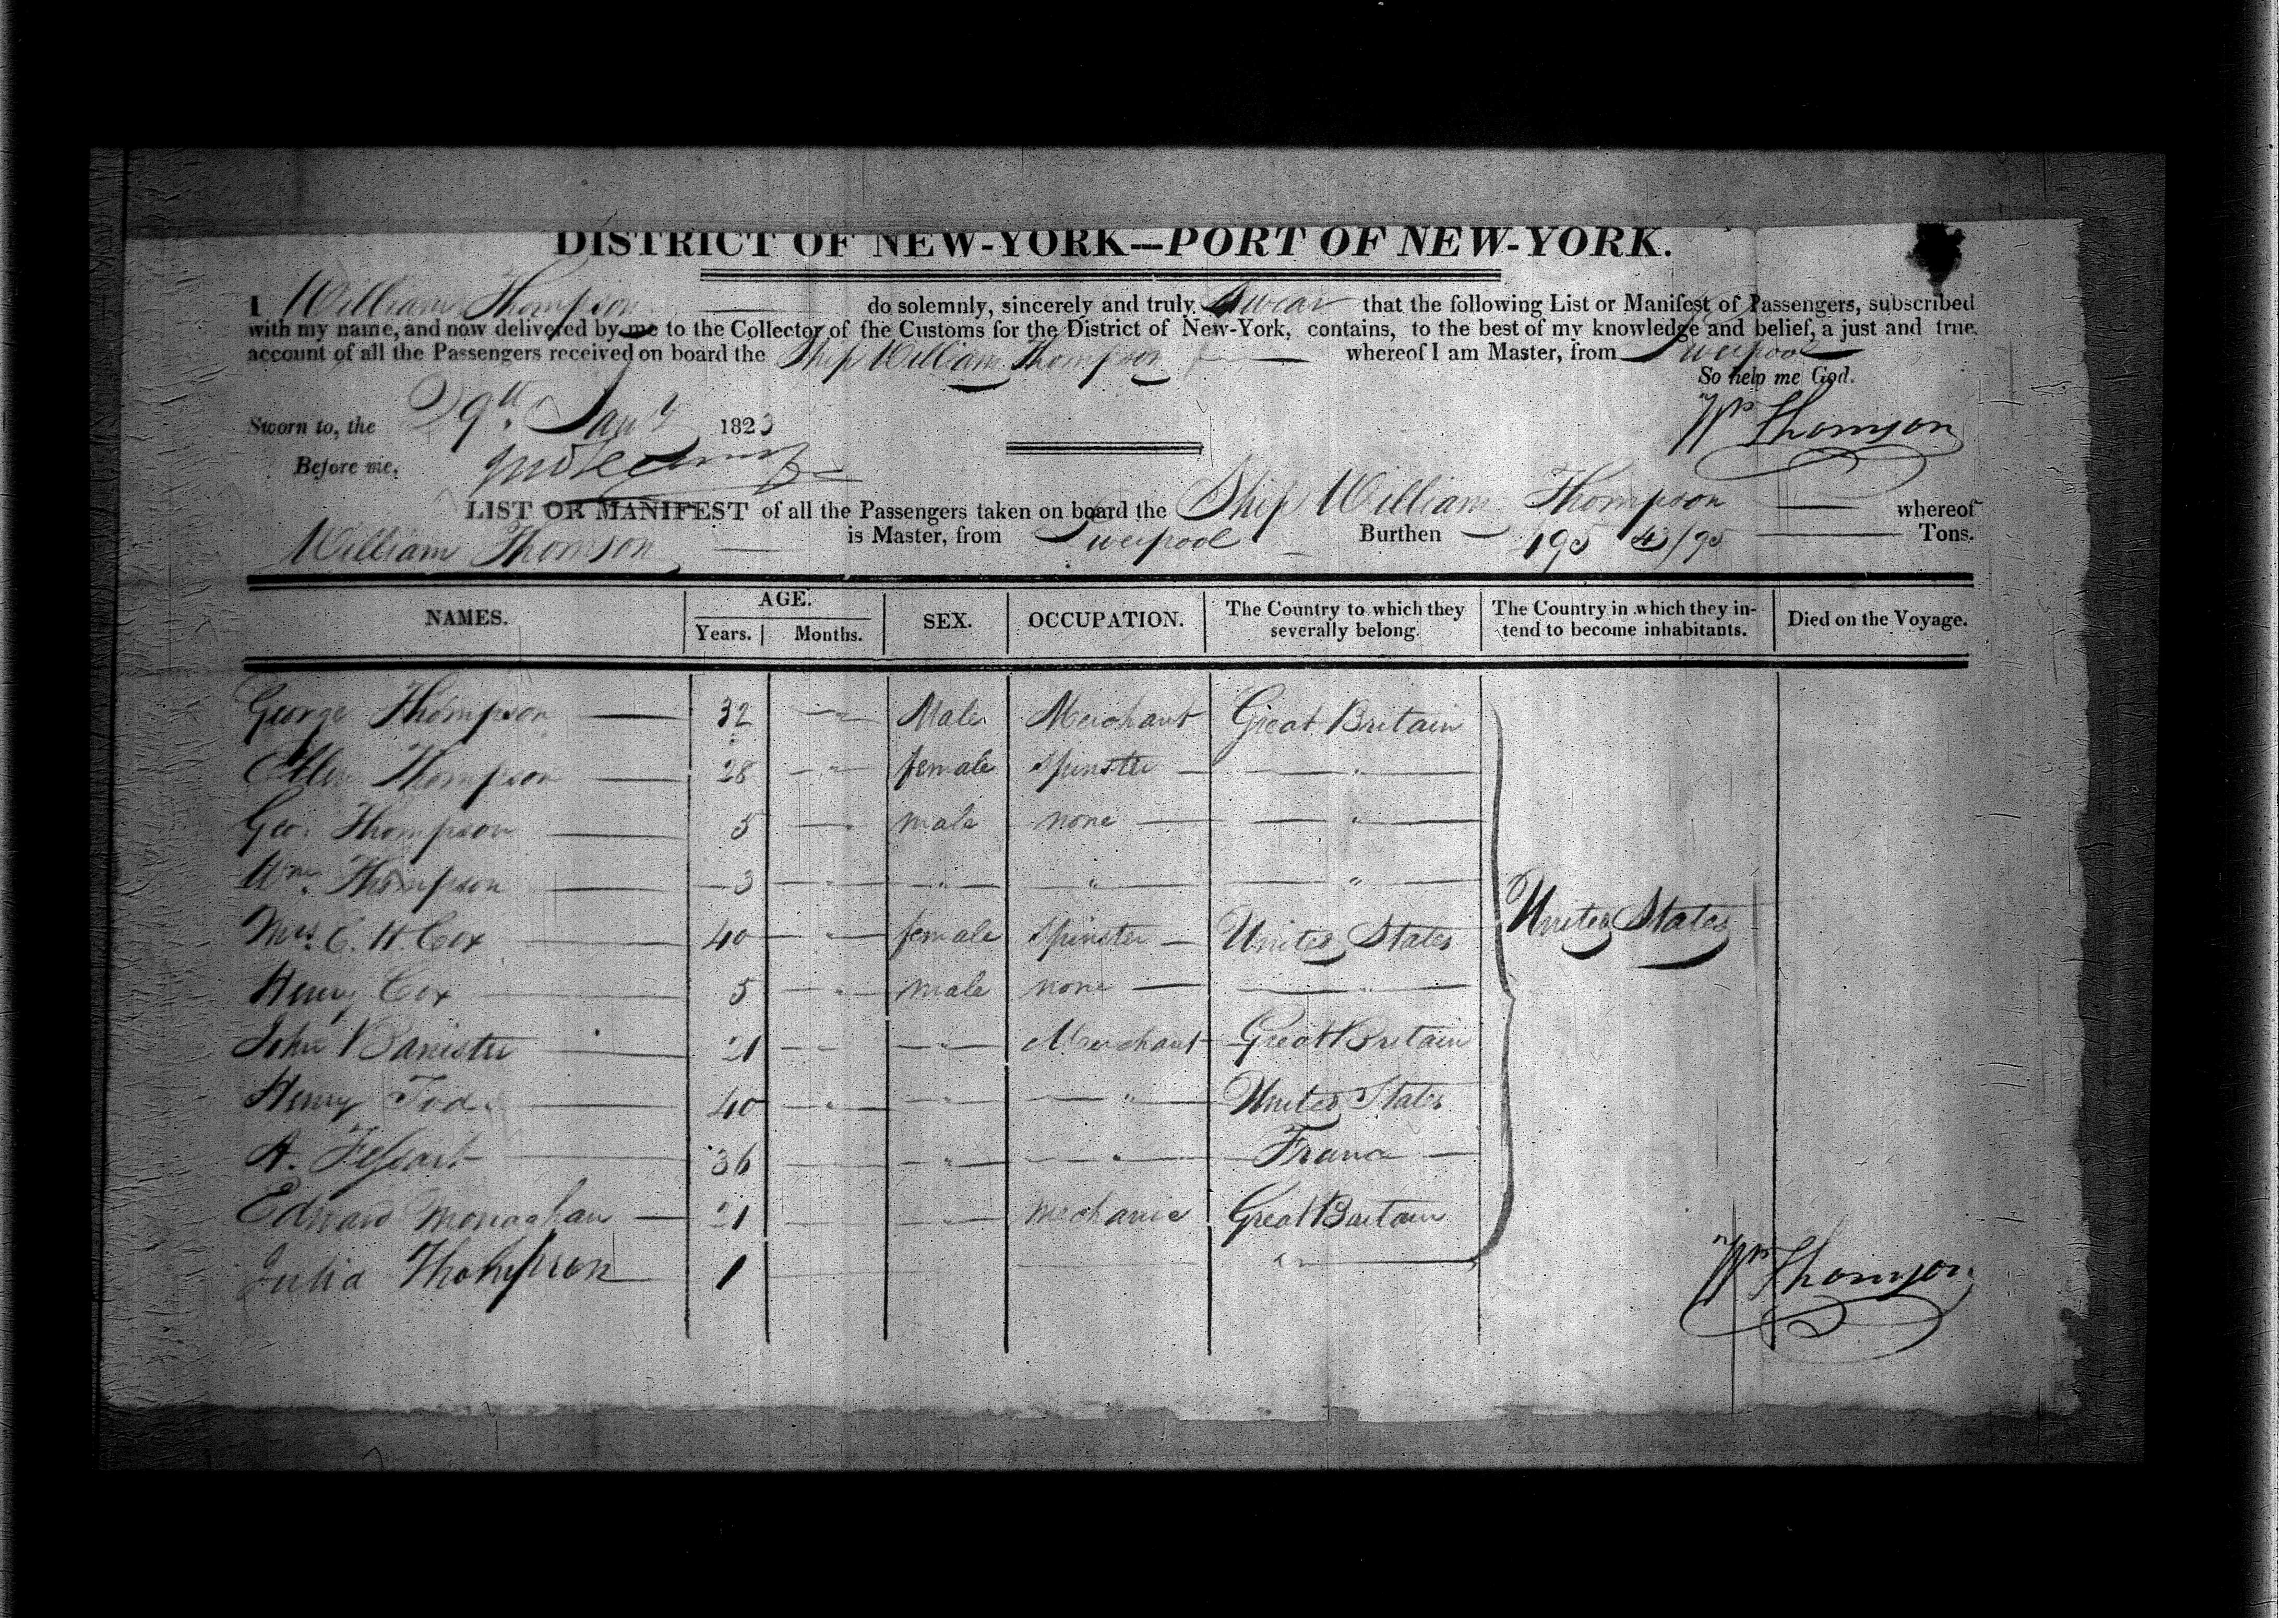 DISTRICT OF NEW-YORK—PORT OF NEW-YORK.
I William Thompson — do solemnly, sincerely and truly Swear that the following List or Manifest of Passengers, subscribed
with my name, and now delivered by me to the Collector of the Customs for the District of New-York, contains, to the best of my knowledge and belief, a just and true
account of all the Passengers received on board the Ship William Thompson — whereof I am Master, from Liverpool
So help me God.
Sworn to, the 29th Jany 1823
Wm Thomson
Before me,
LIST OR MANIFEST of all the Passengers taken on board the Ship William Thompson — whereof
William Thomson — is Master, from Liverpool — Burthen — 495 43/95 — Tons.
NAMES. AGE. SEX. OCCUPATION. The Country to which they severally belong. The Country in which they intend to become inhabitants. Died on the Voyage.
Years. Months.
George Thompson — 32 — " Male Merchant Great Britain
Ellen Thompson — 28 — " — female Spinster — — " —
Geo. Thompson — 5 — " male none — — " —
Wm. Thompson — 3 — " — — " — — " — — " —
Mrs. C. H Cox — 40 — " — female Spinster — United States
United States
Henry Cox — 5 — " — male none — — " —
John Banister — 21 — — — " — Merchant Great Britain
Henry Tod — 40 — " — — " — — " — United States
A. Fessart — 36 — — " — — " — France —
Edward Monaghan — 21 — — " — mechanic Great Britain
Julia Thompson — 1 — — — " —
Wm Thomson